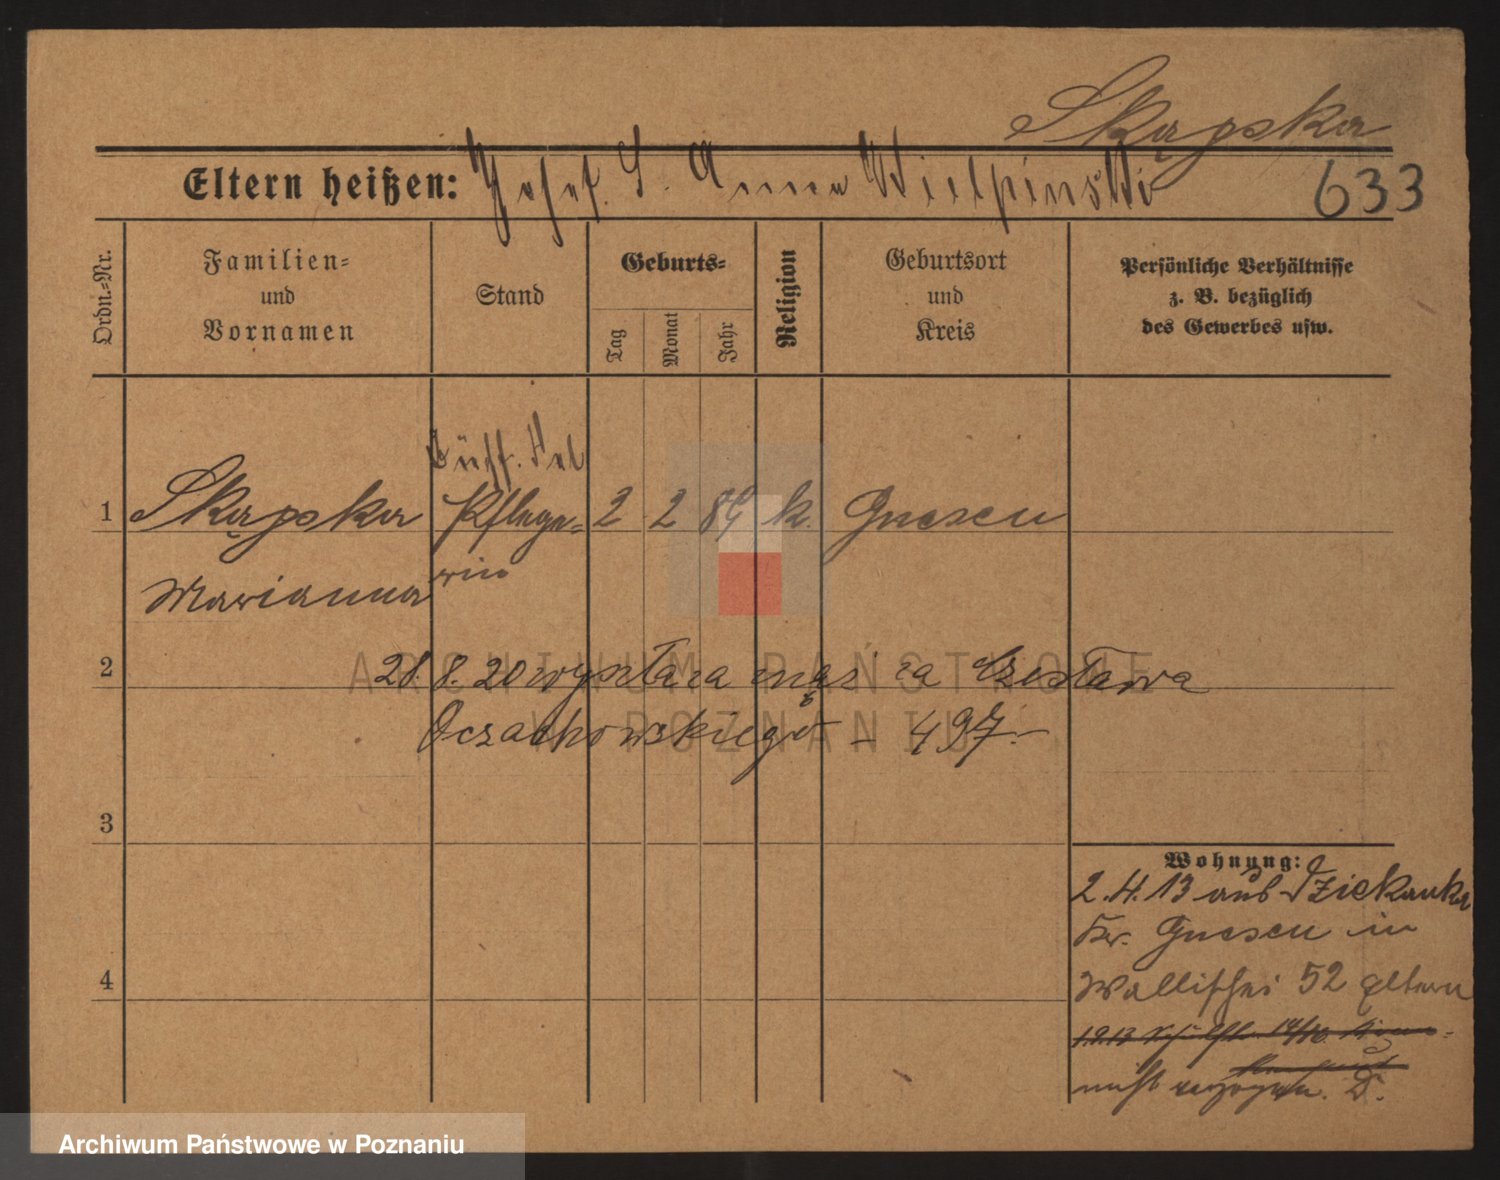 Skąpska
Eltern heißen: Josef S. Anna Wielpinski
633
Ordn.-Nr.
Familien-
und
Vornamen
Stand
Geburts-
Tag
Monat
Jahr
Religion
Geburtsort
und
Kreis
Persönliche Verhältnisse
z. B. bezüglich
des Gewerbes usw.
Büff.
1 Skąpska Pflege- 2 2 89 k. Gnesen
rin
Marianna
2 28. 8. 20 wyszła za mąż za Czesława
Oczachowskiego – 497.–
3
Wohnung:
2.4.13 aus Dziekanka
Kr. Gnesen in
4
Wallischei 52 Eltern
1.9.13
nicht verzogen. D.
ARCHIWUM PAŃSTWOWE
W POZNANIU
Archiwum Państwowe w Poznaniu